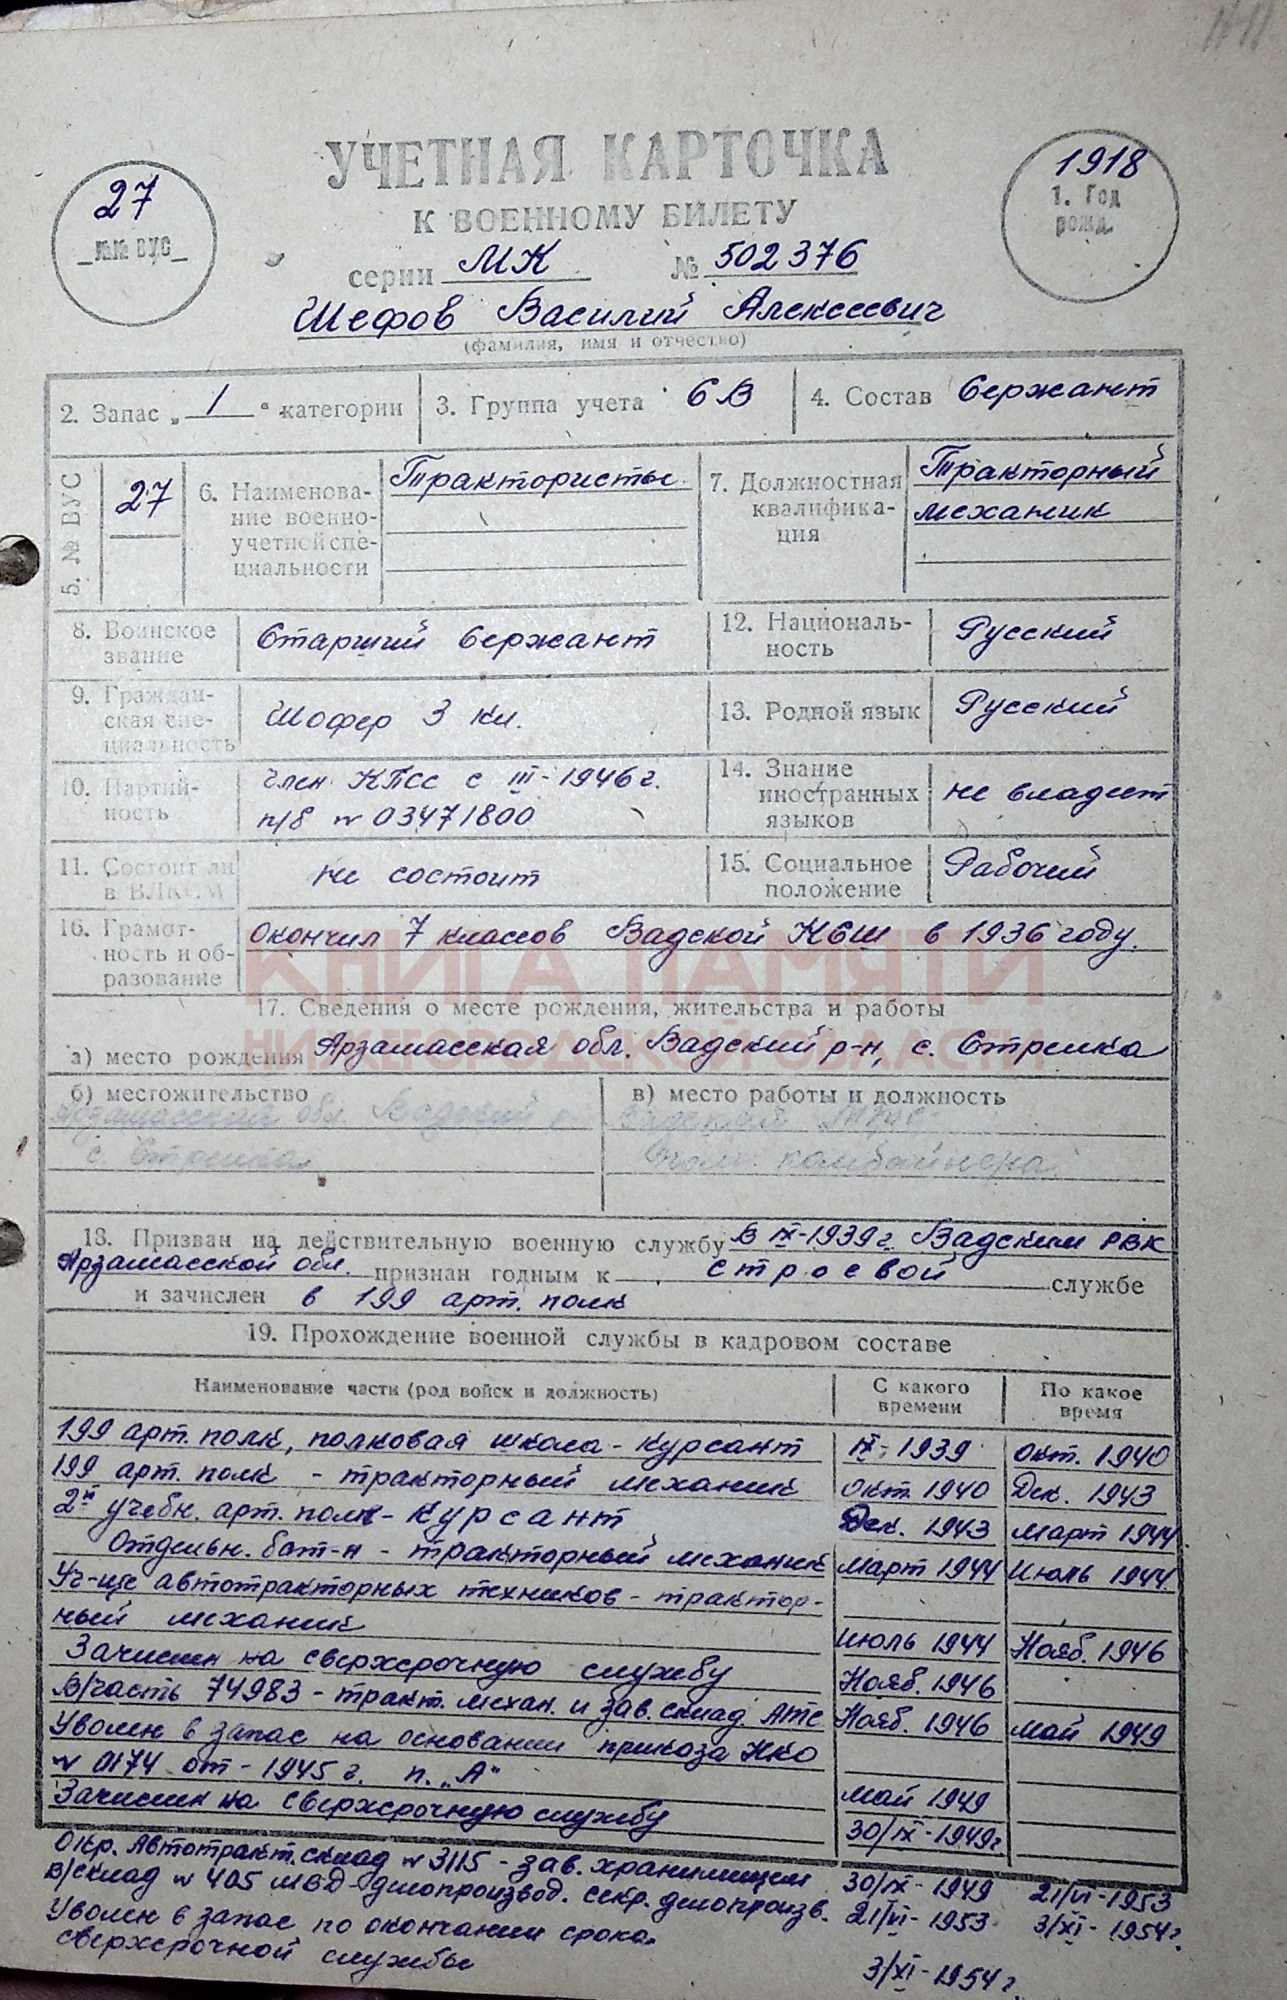 УЧЕТНАЯ КАРТОЧКА
К ВОЕННОМУ БИЛЕТУ
27
№№ ВУС
1918
1. Год
рожд.
серии МК № 502376
Шефов Василий Алексеевич
(фамилия, имя и отчество)
2. Запас „ 1 “ категории
3. Группа учета СВ
4. Состав Сержант
5. № ВУС
27
6. Наименова-
ние военно-
учетной спе-
циальности
Трактористы
7. Должностная
квалифика-
ция
Тракторный
механик
8. Воинское
звание
Старший сержант
12. Националь-
ность
Русский
9. Граждан-
ская спе-
циальность
Шофер 3 кл.
13. Родной язык
Русский
10. Партий-
ность
член КПСС с III-1946 г.
п/б № 03471800
14. Знание
иностранных
языков
не владеет
11. Состоит ли
в ВЛКСМ
не состоит
15. Социальное
положение
Рабочий
16. Грамот-
ность и об-
разование
Окончил 7 классов Вадской НСШ в 1936 году.
КНИГА ПАМЯТИ
НИЖЕГОРОДСКОЙ ОБЛАСТИ
17. Сведения о месте рождения, жительства и работы
а) место рождения Арзамасская обл. Вадский р-н, с. Стрелка
б) местожительство
Арзамасская обл. Вадский р-н
с. Стрелка
в) место работы и должность
Вадский
комбайнера
18. Призван на действительную военную службу В IX-1939 г. Вадским РВК
Арзамасской обл. признан годным к строевой службе
и зачислен в 199 арт. полк
19. Прохождение военной службы в кадровом составе
Наименование части (род войск и должность)
С какого
времени
По какое
время
199 арт. полк, полковая школа - курсант IX-1939 окт. 1940
199 арт. полк - тракторный механик окт. 1940 Дек. 1943
2й учебн. арт. полк - курсант Дек. 1943 Март 1944
Отдельн. бат-н - тракторный механик Март 1944 Июль 1944
Уч-ще автотракторных техников - трактор-
ный механик Июль 1944 Нояб. 1946
Зачислен на сверхсрочную службу Нояб. 1946
В/часть 74983 - тракт. механ. и зав. склад. АТС Нояб. 1946 Май 1949
Уволен в запас на основании приказа НКО
№ 0174 от - 1945 г. п. „А“ Май 1949
Зачислен на сверхсрочную службу 30/IX-1949 г.
Окр. Автотракт. склад № 3115 - зав. хранилищем 30/IX-1949 21/VI-1953
В/склад № 405 МВД - делопроизвод. секр. делопроизв. 21/VI-1953 3/XI-1954 г.
Уволен в запас по окончании срока
сверхсрочной службы 3/XI-1954 г.